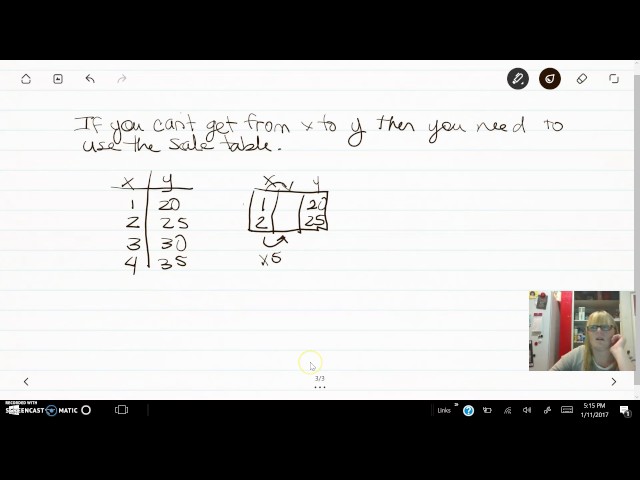 If you can't get from x to y then you need to
use the sale table.
x y
1 20
2 25
3 30
4 35
x y
1 20
2 25
x5
3/3
RECORDED WITH
SCREENCAST MATIC
Links
5:15 PM
1/11/2017